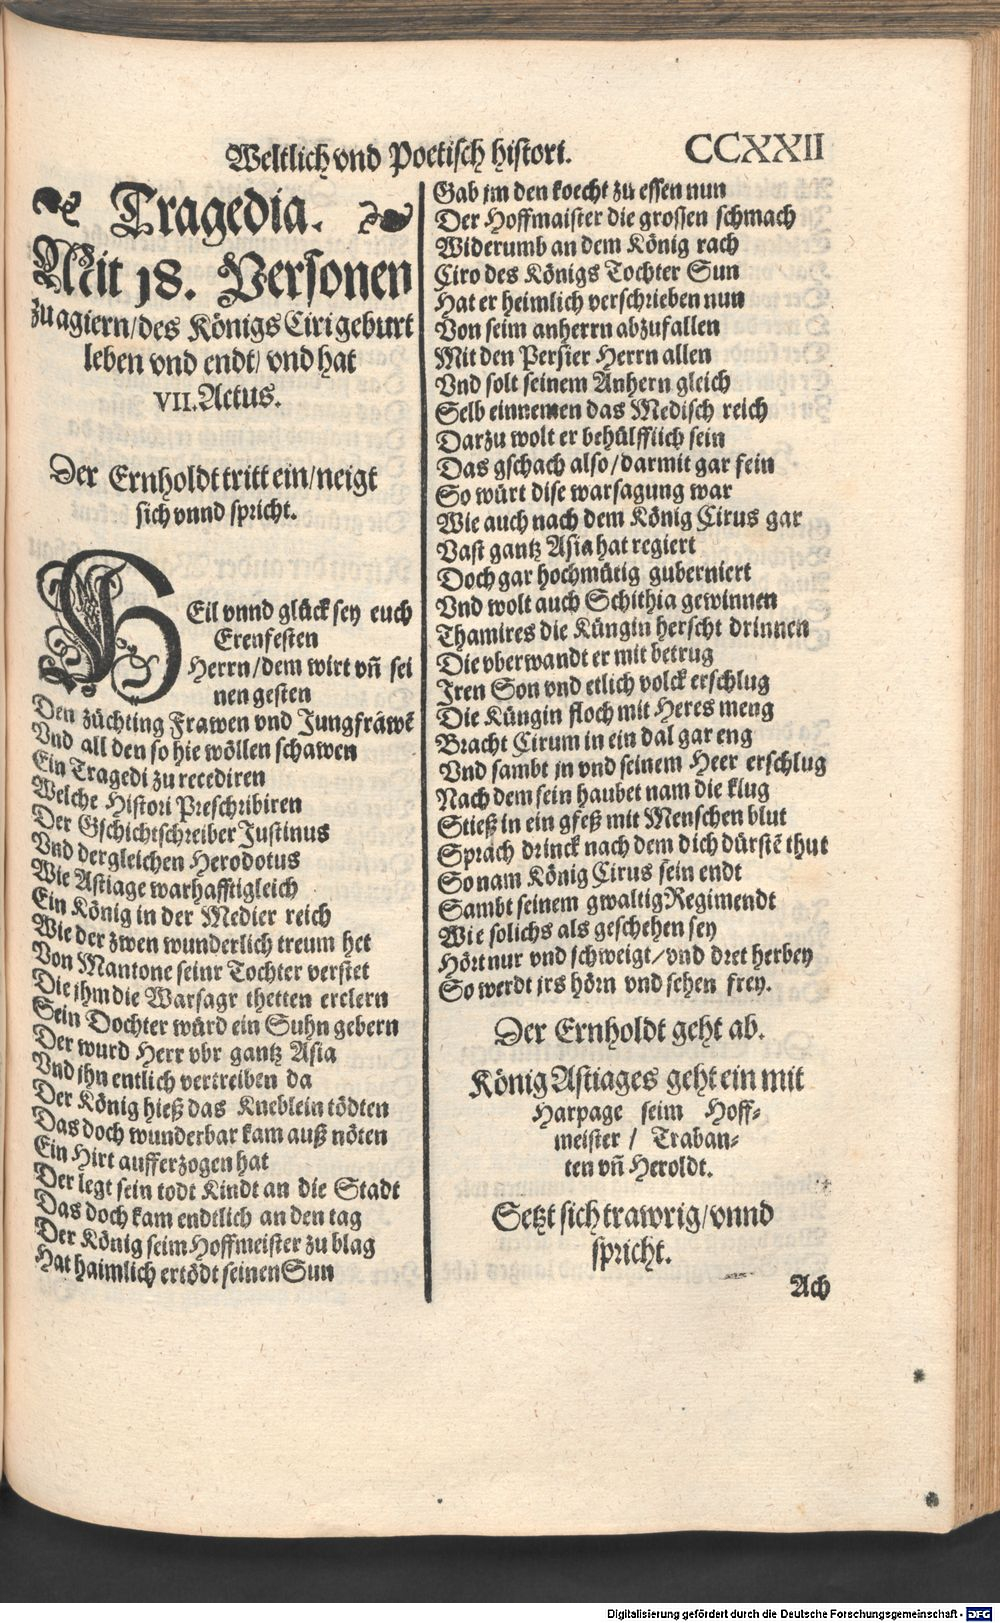 Weltlich vnd Poetisch histori.
CCXXII
Tragedia.
Mit 18. Personen
zu agiern/des Königs Ciri geburt
leben vnd endt/ vnd hat
VII. Actus.
Der Ernholdt tritt ein/neigt
sich vnnd spricht.
HEil vnnd glück sey euch
Erenfesten
Herrn/dem wirt vñ sei
nen gesten
Den züchting Frawen vnd Jungfräwẽ
Vnd all den so hie wöllen schawen
Ein Tragedi zu recediren
Welche Histori Preschribiren
Der Gschichtschreiber Justinus
Vnd dergleichen Herodotus
Wie Astiage warhafftigleich
Ein König in der Medier reich
Wie der zwen wunderlich treum het
Von Mantone seinr Tochter verstet
Die ihm die Warsagr thetten erclern
Sein Dochter würd ein Suhn gebern
Der wurd Herr vbr gantz Asia
Vnd ihn entlich vertreiben da
Der König hieß das Kneblein tödten
Das doch wunderbar kam auß nöten
Ein Hirt aufferzogen hat
Der legt sein todt Kindt an die Stadt
Das doch kam endtlich an den tag
Der König seim Hoffmeister zu blag
Hat haimlich ertödt seinen Sun
Gab jm den koecht zu essen nun
Der Hoffmaister die grossen schmach
Widerumb an dem König rach
Ciro des Königs Tochter Sun
Hat er heimlich verschrieben nun
Von seim anherrn abzufallen
Mit den Persier Herrn allen
Vnd solt seinem Anhern gleich
Selb einnemen das Medisch reich
Darzu wolt er behülfflich sein
Das gschach also/darmit gar fein
So würt dise warsagung war
Wie auch nach dem König Cirus gar
Vast gantz Asia hat regiert
Doch gar hochmütig guberniert
Vnd wolt auch Schithia gewinnen
Thamires die Küngin herscht drinnen
Die vberwandt er mit betrug
Iren Son vnd etlich volck erschlug
Die Küngin floch mit Heres meng
Bracht Cirum in ein dal gar eng
Vnd sambt jn vnd seinem Heer erschlug
Nach dem sein haubet nam die klug
Stieß in ein gfeß mit Menschen blut
Sprach drinck nach dem dich dürstẽ thut
So nam König Cirus sein endt
Sambt seinem gwaltig Regimendt
Wie solichs als geschehen sey
Hört nur vnd schweigt/vnd dret herbey
So werdt jrs hörn vnd sehen frey.
Der Ernholdt geht ab.
König Astiages geht ein mit
Harpage seim Hoff-
meister / Traban-
ten vñ Heroldt.
Setzt sich trawrig/vnnd
spricht.
Ach
Digitalisierung gefördert durch die Deutsche Forschungsgemeinschaft - DFG